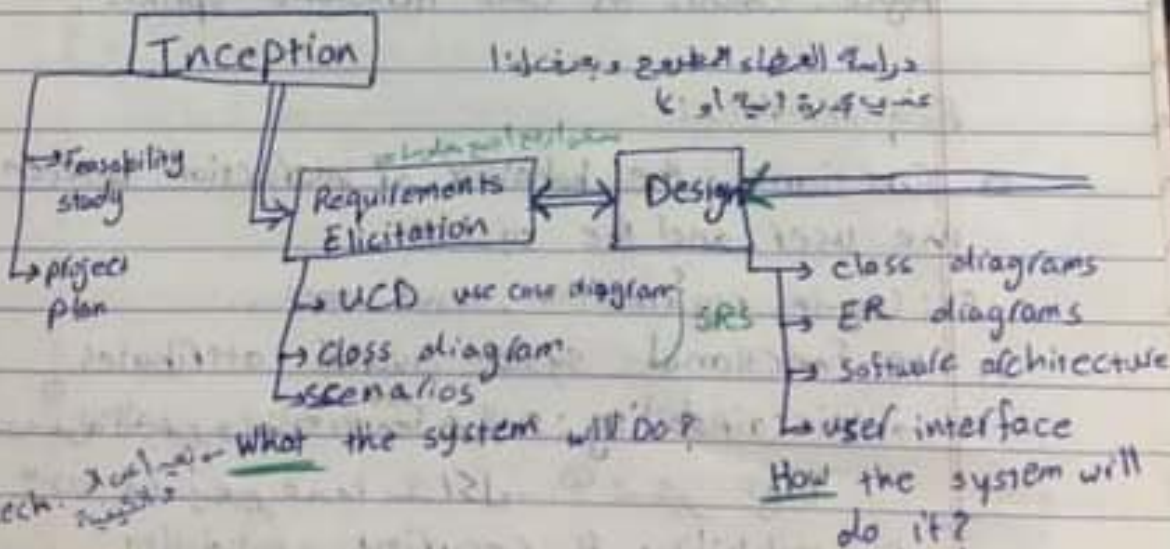 Inception
دراسة العطاء المطروح و
أو لا
Feasability
study
project
plan
Requirements
Elicitation
Design
UCD use case diagram
class diagram
scenarios
SRS
class diagrams
ER diagrams
software architecture
user interface
What the system will Do?
How the system will
do it?